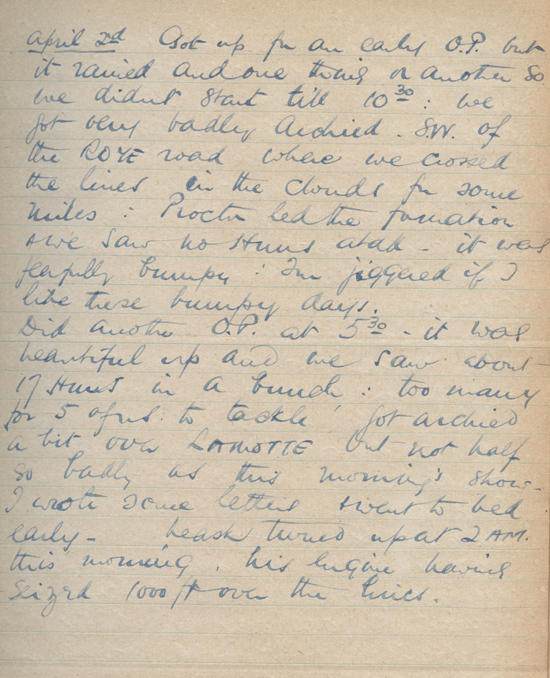 April 2nd Got up for an early O.P. but
it rained and one thing or another so
we didnt start till 10 30 : we
got very badly Archied. S.W. of
the ROYE road where we crossed
the lines in the clouds for some
miles : Proctor led the formation
& we saw no Huns atall - it was
fearfully bumpy : I'm jiggered if I
like these bumpy days.
Did another O.P. at 5 30 - it was
beautiful up and we saw about
17 Huns in a bunch : too many
for 5 of us to tackle, got archied
a bit over LAMOTTE but not half
so badly as this morning's show -
I wrote some letters & went to bed
early - Leask turned up at 2 AM.
this morning, his engine having
seized 1000 ft over the lines.